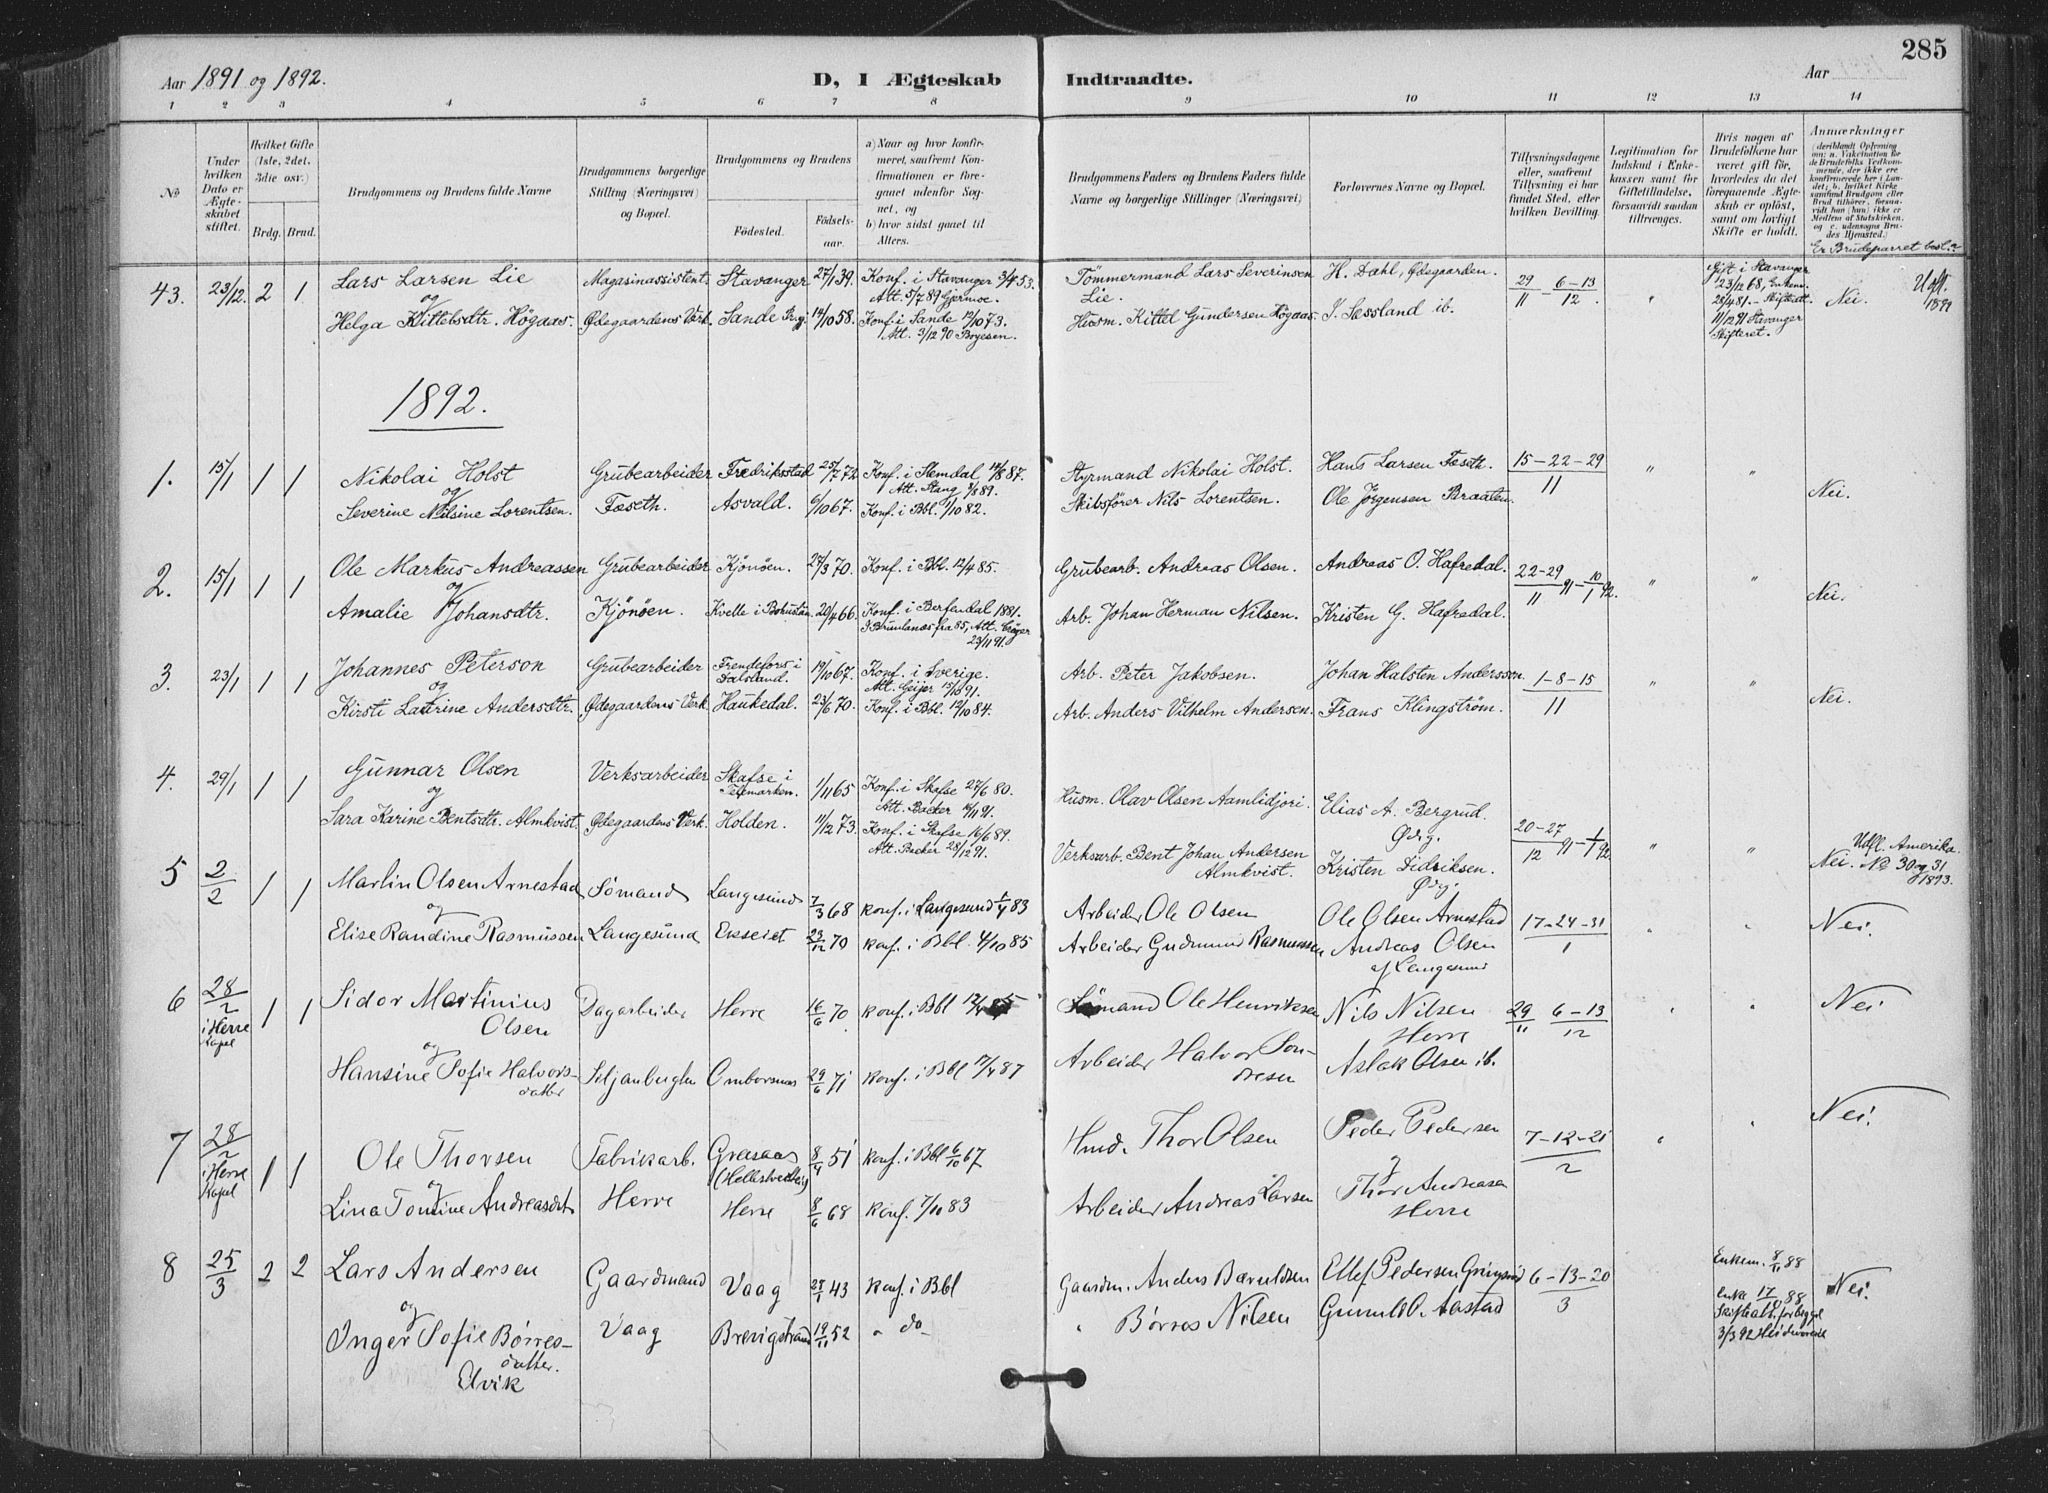 285
Aar 1891 og 1892.
D, I Ægteskab Indtraadte.
Aar
1 2 3 4 5 6 7 8 9 10 11 12 13 14
No
Under hvilken Dato er Ægteskabet stiftet.
Hvilket Gifte (1ste, 2det, 3die osv.)
Brdg. Brud.
Brudgommens og Brudens fulde Navne
Brudgommens borgerlige Stilling (Næringsvei) og Bopæl.
Brudgommens og Brudens
Fødested. Fødselsaar.
a) Naar og hvor konfirmeret, saafremt Konfirmationen er foregaaet udenfor Sognet, og
b) hvor sidst gaaet til Alters.
Brudgommens Faders og Brudens Faders fulde Navne og borgerlige Stillinger (Næringsvei)
Forlovernes Navne og Bopæl.
Tillysningsdagene eller, saafremt Tillysning ei har fundet Sted, efter hvilken Bevilling.
Legitimation for Indskud i Enkekassen samt for Giftetilladelse, forsaavidt saadan tiltrænges.
Hvis nogen af Brudefolkene har været gift før, hvorledes da det foregaaende Ægteskab er opløst, samt om lovligt Skifte er holdt.
Anmærkninger
Er Brudeparret besl.?
43. 23/12. 2 1 Lars Larsen Lie Magasinassistent Stavanger 27/1 39. Konf. i Stavanger 3/4 53. Tömmermand Lars Severinsen Lie. H. Dahl, Ødegaarden. 29/11 – 6–13/12. " Gift i Stavanger 23/12 68, Enkem. 28/4 81. – Skifteatt. 11/12 91 Stavanger Skifteret. Nei. Udfl. 1899
Att. 5/7 89 Gjermoe.
og
Helga Kittelsdtr. Högaas. Ødegaardens Værk Sande Prgj. 14/10 58. Konf. i Sande 12/10 73. Husm. Kittel Gundersen Högaas J. Sæsland ib.
Att. 3/12 90 Boyesen.
1892.
1. 15/1 1 1 Nikolai Holst Grubearbeider Fredriksstad 25/7 72. Konf. i Slemdal 14/8 87. Styrmand Nikolai Holst. Hans Larsen Fæseth. 15–22–29/11 " " Nei.
og Att. Stang 3/8 89.
Severine Nilsine Lorentsen. Fæseth. Asvald. 6/10 67. Konf. i Bbl. 1/10 82. Skibsfører Nils Lorentsen. Ole Jørgensen Braaten.
2. 15/1 1 1 Ole Markus Andreassen Grubearbeider Kjönöen. 27/3 70. Konf. i Bbl. 12/4 85. Grubearb. Andreas Olsen. Andreas O. Hafredal. 22–29/11 91 – 10/1 92. " " Nei.
og
Amalie Johansdtr. Kjönöen. Kville i Bohuslän. 20/4 66. Konf. i Berfendal 1881. Arb. Johan Herman Nilsen. Kristen G. Hafredal.
I Brunlanæs fra 85, Att. Cröger 23/11 91.
3. 23/1 1 1 Johannes Peterson Grubearbeider Frendefors i Dalsland. 19/10 67. Konf. i Sverige. Arb. Peter Jakobsen. Johan Halsten Andersson 1–8–15/11 " " Nei.
og Att. Geijer 12/10 91.
Kirsti Laurine Andersdtr. Ødegaardens Verk Haukedal. 23/6 70. Konf. i Bbl. 12/10 84. Arb. Anders Vilhelm Andersen. Frans Klingström.
4. 29/1 1 1 Gunnar Olsen Verksarbeider Skafse i Telemarken. 1/11 65 Konf. i Skafse 27/6 80. Husm. Olav Olsen Aamlidjori. Elias A. Bergrud. Ødrg. 20–27/12 91 – 1/1 92. " " Nei. Udfl. Amerika. No 30 og 31 1893.
og Att. Backer 16/11 91.
Sara Karine Bentsdtr. Almkvist. Ødegaardens Verk. Holden. 11/12 73. Konf. i Skafse 16/6 89. Verksarb. Bent Johan Andersen Almkvist. Kristen Didriksen. Ødrg.
Att. Backer 28/12 91.
5 2/2 1 1 Martin Olsen Arnestad Sömand Langesund 7/3 68 konf. i Langesund 1/4 83 Arbeider Ole Olsen Ole Olsen Arnestad 17–24–31/1 Nei.
og
Elise Randine Rasmussen Langesund Ekseiet 23/12 70 konf. i Bbl. 4/10 85 Arbeider Gudmund Rasmussen Andreas Olsen af Langesund
6 28/2 i Herre Kapel 1 1 Sidor Martinius Olsen Dagarbeider Herre 16/6 70 konf. i Bbl 12/4 85 Sömand Ole Henriksen Nils Nilsen Herre 29/11 6–13/12 Nei
og
Hansine Sofie Halvorsdatter Siljanbugten Omborsnæs 29/6 71 konf. i Bbl 17/4 87 Arbeider Halvor Sondresen Aslak Olsen ib.
7 28/2 i Herre Kapel 1 1 Ole Thorsen Fabrikarb. Græsaas (Hellestvedt) 8/9 51 konf. i Bbl 6/10 67 Hmd. Thor Olsen Peder Pedersen 7–12–21/2 Nei.
og
Lina Tomine Andreasdt. Herre Herre 8/6 68 konf. 7/10 83 Arbeider Andreas Larsen Thor Andreasen Herre
8 25/3 2 2 Lars Andersen Gaardmand Vaag 28/1 43 konf. i Bbl Gaardm. Anders Bæruldsen Ellef Pedersen Gringsrød 6–13–20/3 Enkem. 8/11 88 Nei.
og
Inger Sofie Børresdatter Elvik Vaag Brevigstrand 19/11 52 " do " Børres Nilsen Gunuld O. Aastad Enke 17/8 88
Skifteatt. 3/3 92